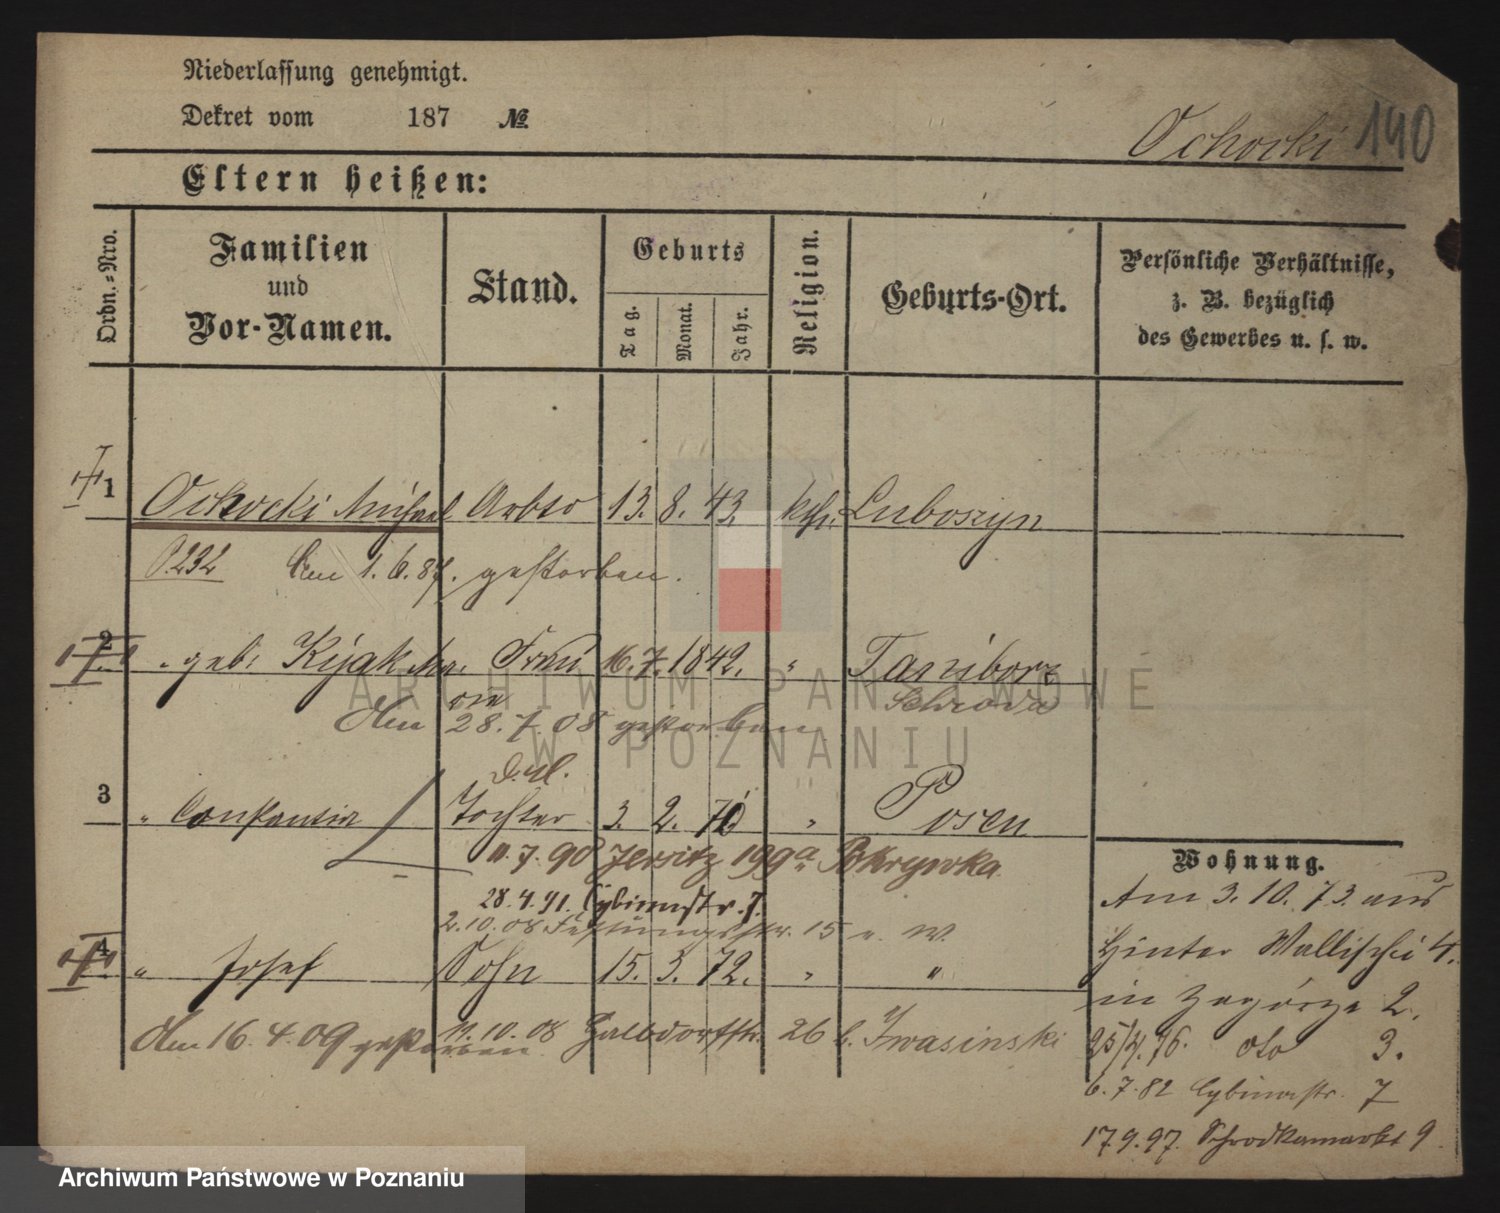 Niederlassung genehmigt.
Dekret vom 187 №
Ochocki 140
Eltern heißen:
Ordn.-Nro.
Familien und Vor-Namen.
Stand.
Geburts
Tag.
Monat.
Jahr.
Religion.
Geburts-Ort.
Persönliche Verhältnisse, z. B. bezüglich des Gewerbes u. s. w.
1 Ochocki Michael Arbtr 13. 8. 43. kth. Luboszyn
P. 232 Am 1. 6. 87. gestorben.
2 " geb: Kijak Frau 16. 7. 1842. "
Schroda
Am 28. 7. 08 gestorben
3 " Constantia Tochter 3. 2. 70 " Posen
11. 7. 90 Jersitz 199a Pokrywka
28. 4. 91. Cybinastr. 7.
2. 10. 08 Festungsstr. 15 v. W.
4 " Josef Sohn 15. 3. 72. " "
Am 16. 4. 09 gestorben
10. 08 26 b. Iwasinski
Wohnung.
Am 3. 10. 73. aus
Hinter Wallischei 4.
in Zagórze 2.
25/4. 76. dto 3.
6. 7. 82 Cybinastr. 7
17. 9. 97. Schrodkamarkt 9
ARCHIWUM PAŃSTWOWE
W POZNANIU
Archiwum Państwowe w Poznaniu